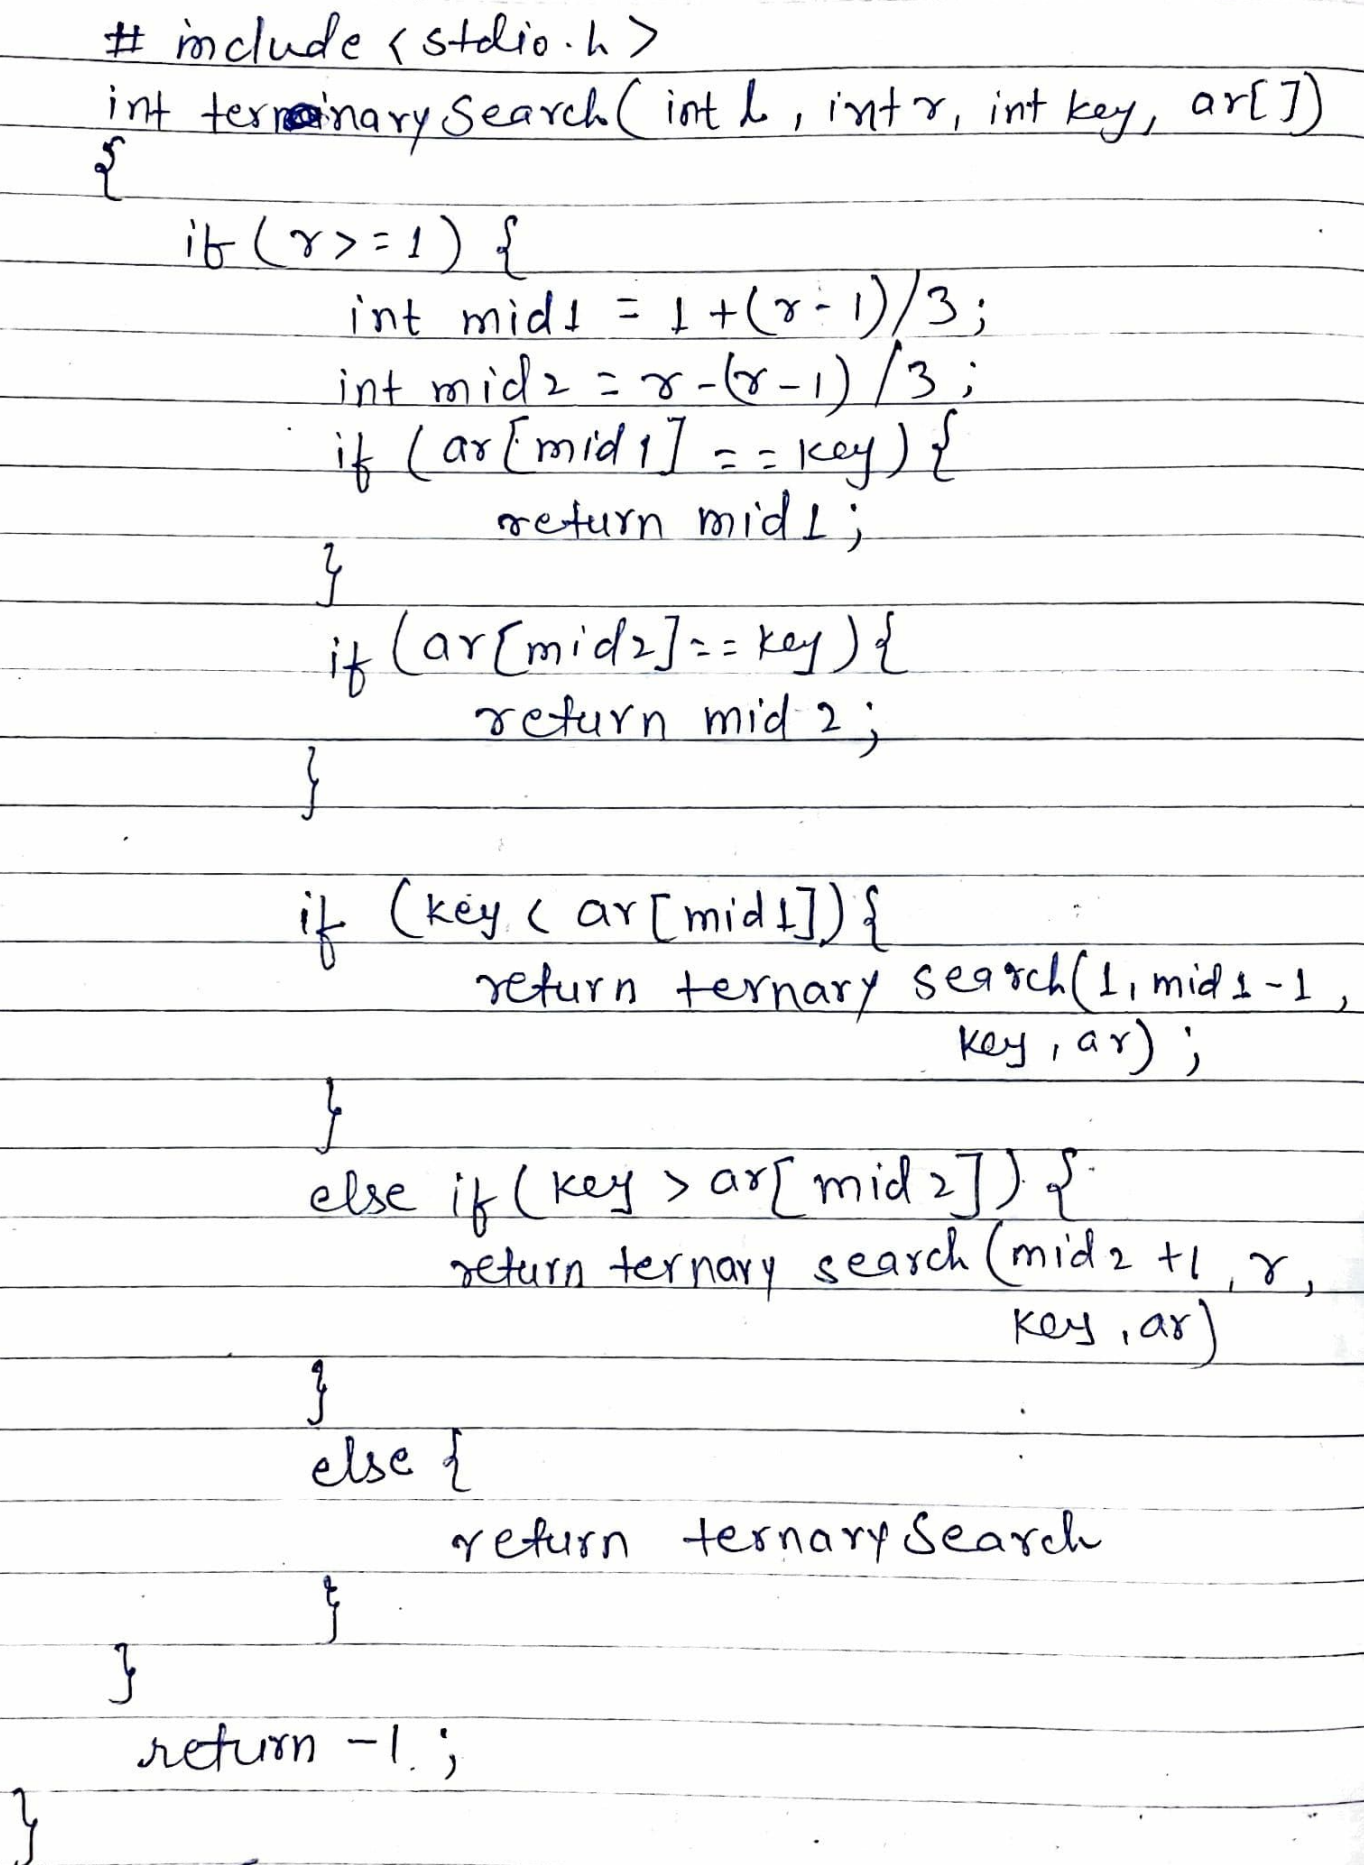 # include <stdio.h>
int ternary Search( int l, int r, int key, ar[])
{
if (r>=1) {
int mid1 = 1+(r-1)/3;
int mid2 = r-(r-1)/3;
if (ar[mid1] == key) {
return mid1;
}
if (ar[mid2]== key) {
return mid2;
}
if (key < ar[mid1]) {
return ternary search(1, mid1-1,
key, ar);
}
else if (key > ar[mid2]) {
return ternary search (mid2 +1, r,
key, ar)
}
else {
return ternary Search
}
}
return -1;
}